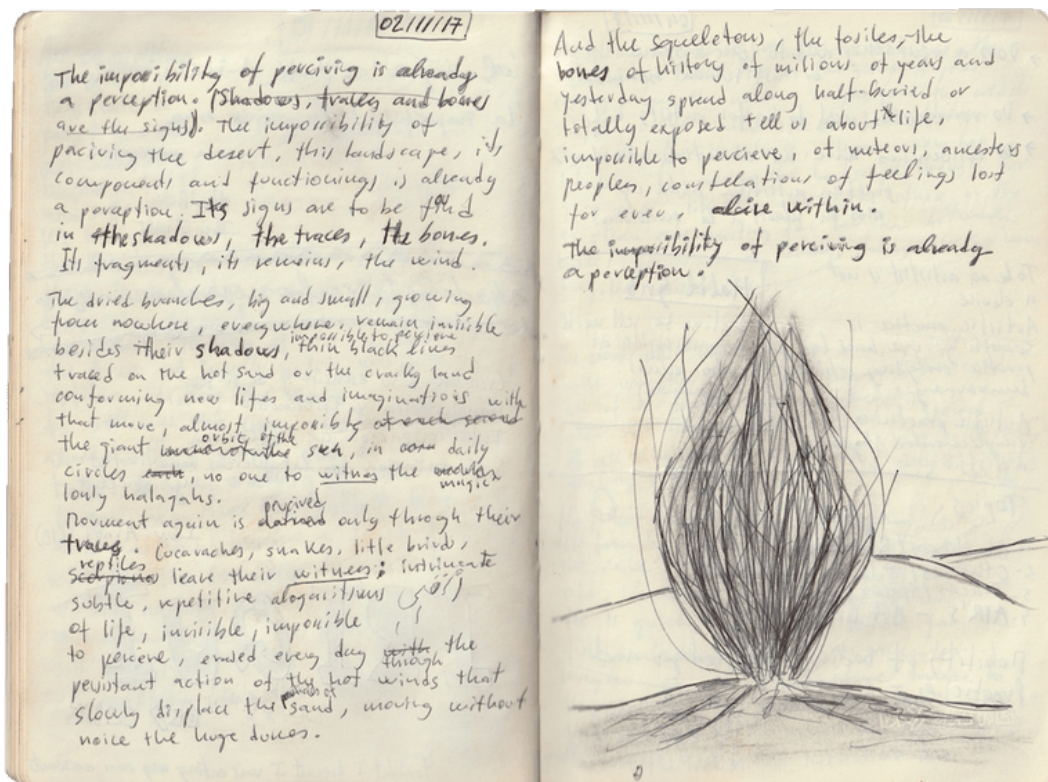 02/11/17
The impossibility of perciving is already
a perception. (Shadows, traces and bones
are the signs). The impossibility of
paciving the desert, this landscape, its
components and functionings is already
a perception. Its signs are to be find
in the shadows, the traces, the bones.
Its fragments, its remains, the wind.
The dried branches, big and small, growing
from nowhere, everywhere, remain invisible
besides their shadows, impossible to percieve thin black lines
traced on the hot sand or the cracky land
conforming new lifes and imaginations with
that move, almost impossibly at each second
the giant orbic of the sun, in daily
circles each, no one to witnes the magic
lonly halagahs.
Movment again is percived only through their
traces. Cocavaches, snakes, little brirds,
reptiles leave their witness; intrincate
subtle, repetitive alogaritisms
of life, invisible, impossible
to percieve, erased every day with through the
persistant action of the hot winds that
slowly displace the sand, moving without
noice the huge dunes.
And the squeletons, the fosiles, the
bones of history of milions of years and
yesterday spread along half-buried or
totally exposed tell us about life,
impossible to percieve, of meteors, ancesters
peoples, constelations of feelings lost
for ever, alive within.
The impossibility of perciving is already
a perception.